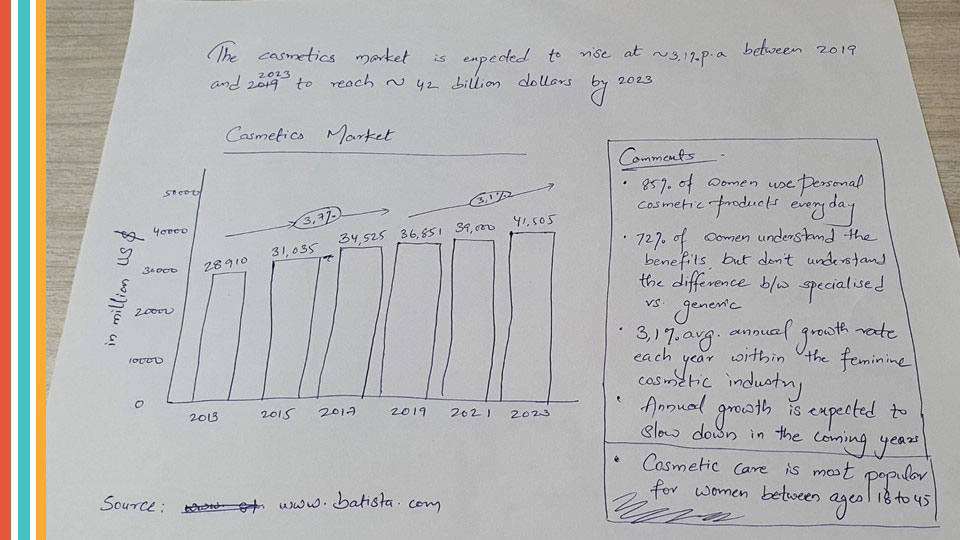 The cosmetics market is expected to rise at ~3,1%.p.a between 2019
and 2019 2023 to reach ~ 42 billion dollars by 2023
Cosmetics Market
in million US $
50000
40000
30000
20000
10000
0
3,7%
3,1%
28910
31,035
34,525
36,851
39,000
41,505
2013
2015
2017
2019
2021
2023
Comments
• 85% of women use personal
cosmetic products everyday
• 72% of women understand the
benefits, but don't understand
the difference b/w specialised
vs. generic
• 3,1% avg. annual growth rate
each year within the feminine
cosmetic industry
• Annual growth is expected to
slow down in the coming years
• Cosmetic care is most popular
for women between ages 18 to 45
Source: www.batista.com